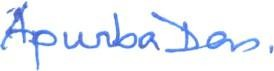 Apurba Das.